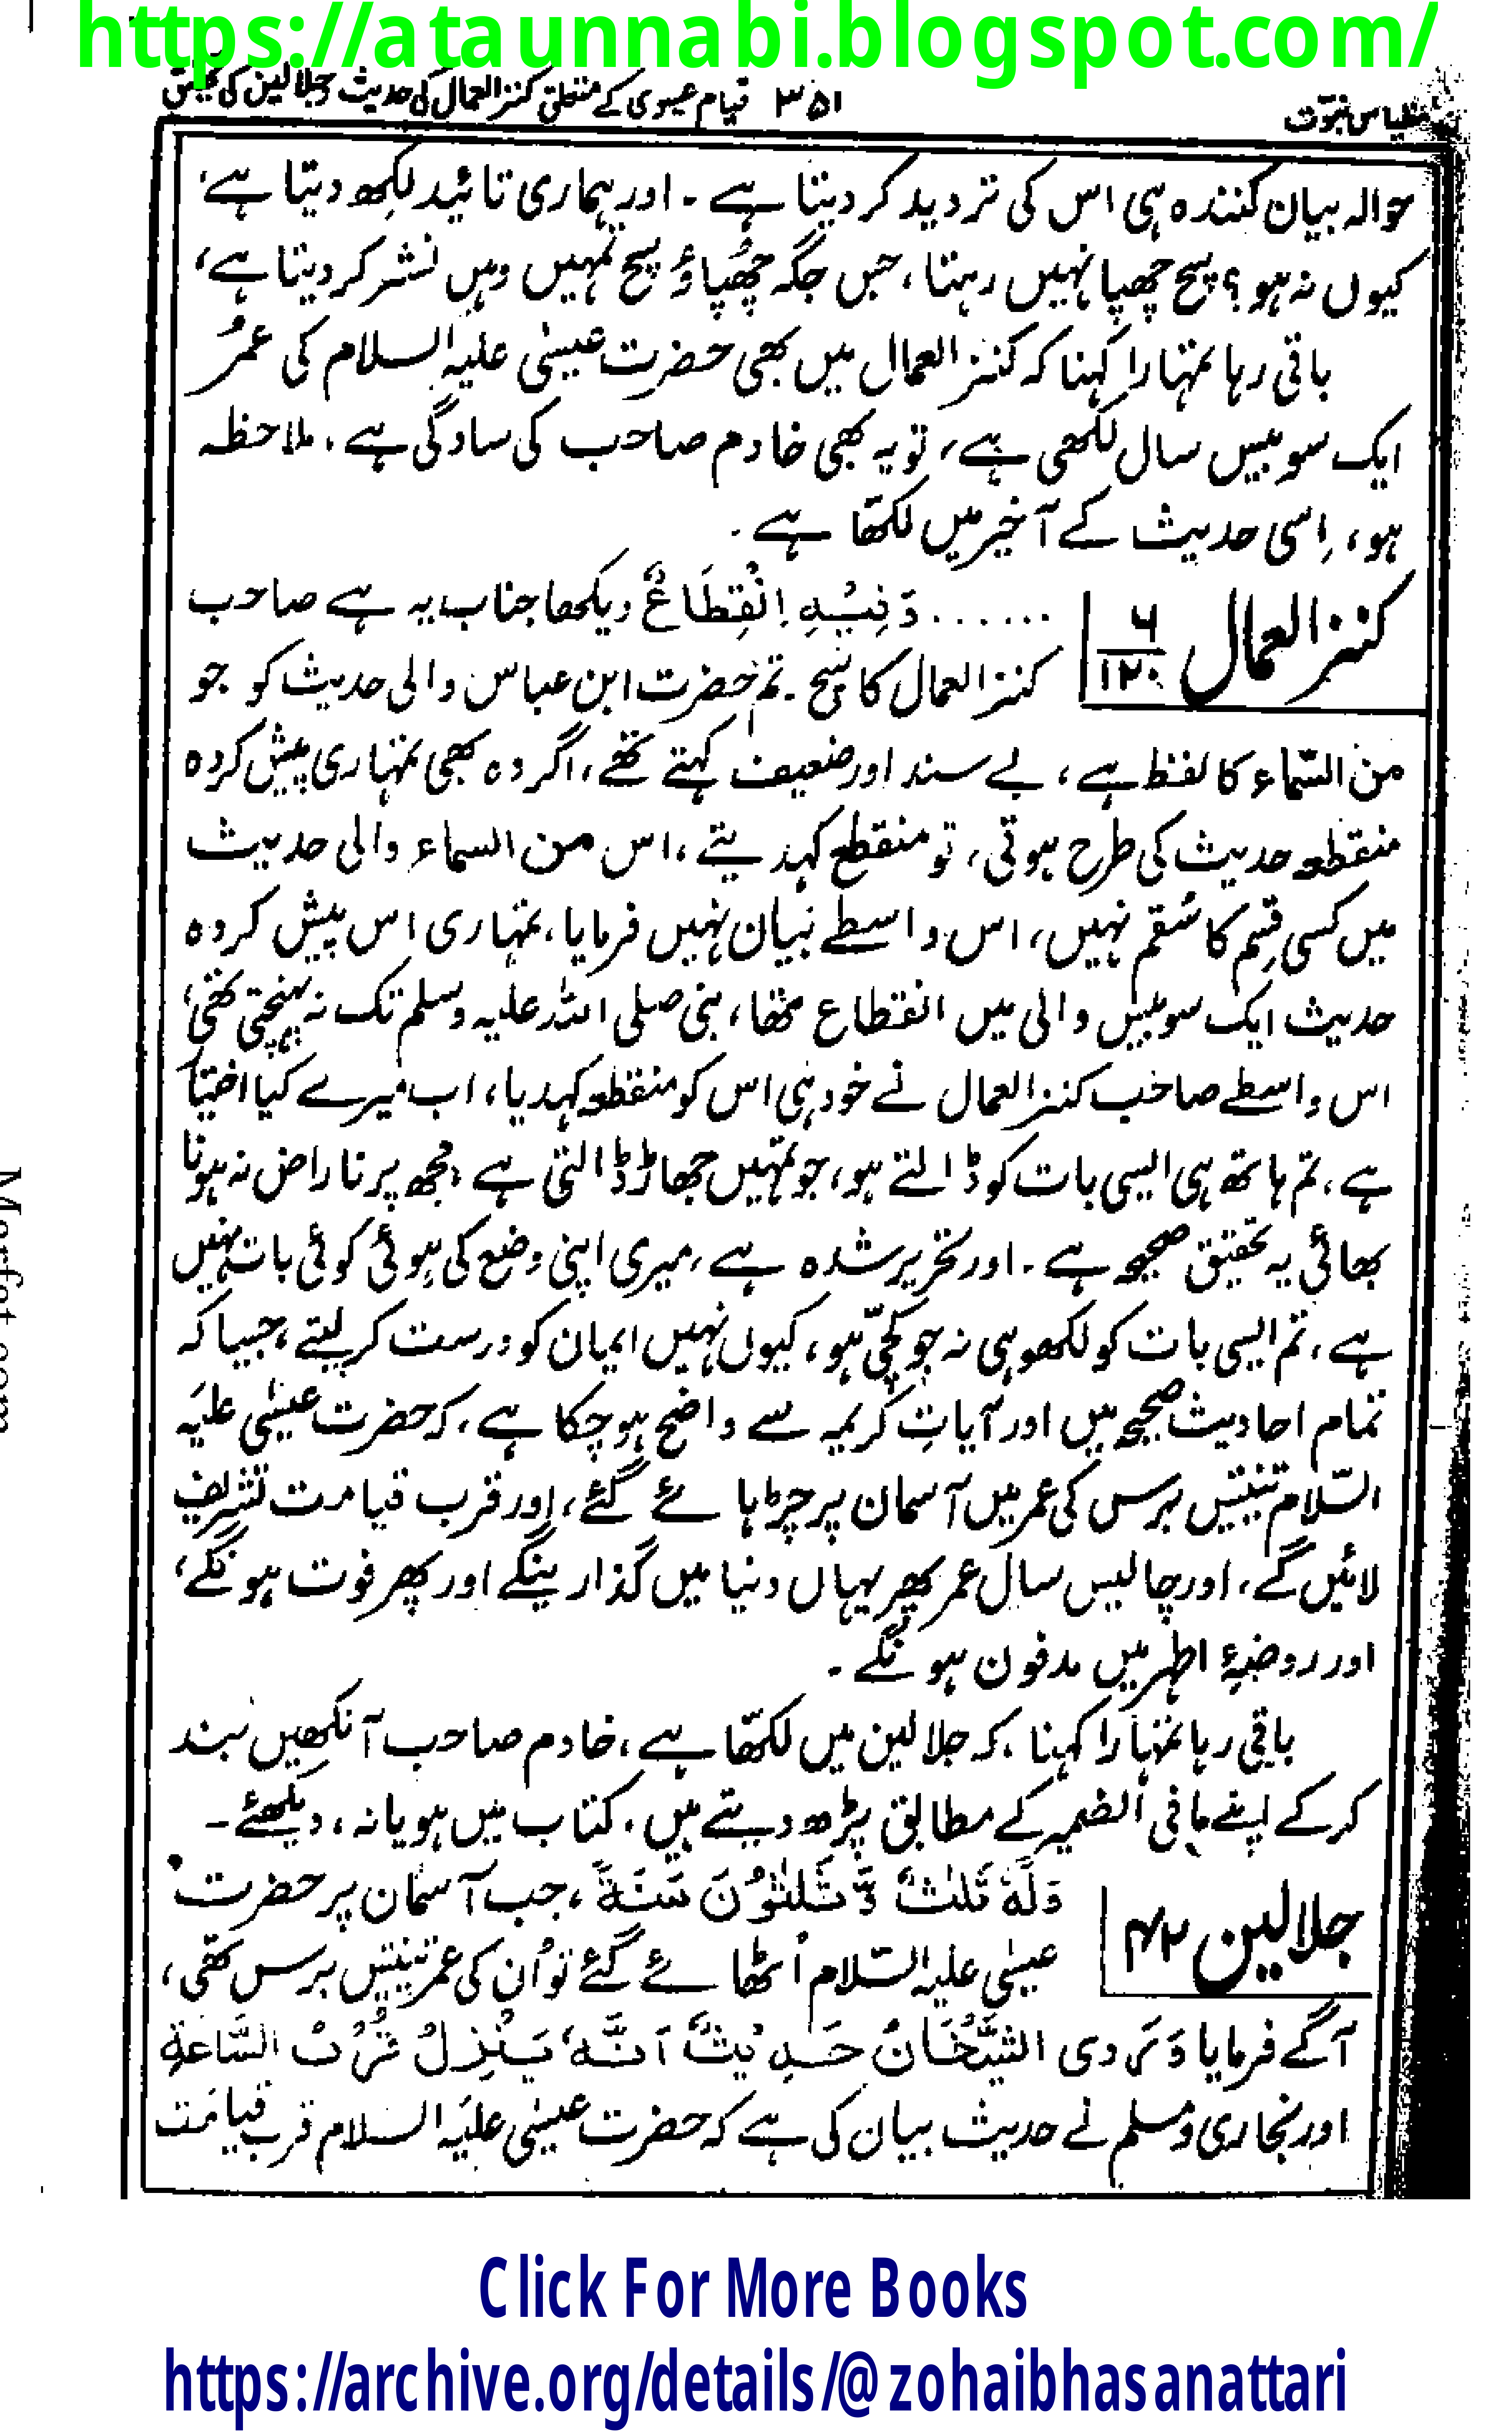 https://ataunnabi.blogspot.com/
مقیاس نبوّت ۳۵۱ قیام عیسوی کے متعلق کنز العمال کی حدیث و جلالین کی تحقیق
حوالہ بیان کنندہ ہی اس کی تردید کر دیتا ہے ۔ اور ہماری تائید لکھ دیتا ہے،
کیوں نہ ہو؟ سچ چھپا نہیں رہتا، جس جگہ چھُپاؤ سچ تمہیں وہیں نشر کر دیتا ہے،
باقی رہا تمہارا کہنا کہ کنز العمال میں بھی حضرت عیسٰی علیہ السلام کی عمر
ایک سو بیس سال لکھی ہے، تو یہ بھی خادم صاحب کی سادگی ہے، ملاحظہ
ہو، اِسی حدیث کے آخیر میں لکھا ہے ۔
کنز العمال ۶/۱۲۰ ...... وَفِیْہِ اِنْقِطَاعٌ دیکھا جناب یہ ہے صاحب
کنز العمال کا سچ ۔ تم حضرت ابن عباس والی حدیث کو جو
من السّماء کا لفظ ہے، بے سند اور ضعیف کہتے تھے، اگر وہ بھی تمہاری پیش کردہ
منقطعہ حدیث کی طرح ہوتی، تو منقطع کہدیتے، اس من السماء والی حدیث
میں کسی قِسم کا سُقم نہیں، اس واسطے بیان نہیں فرمایا، تمہاری اس پیش کردہ
حدیث ایک سو بیس والی میں انقطاع تھا، نبی صلی اللہ علیہ وسلم تک نہ پہنچتی تھی،
اس واسطے صاحب کنز العمال نے خود ہی اس کو منقطعہ کہدیا، اب میرے کیا اختیار
ہے، تم ہاتھ ہی ایسی بات کو ڈالتے ہو، جو تمہیں جھاڑ ڈالتی ہے، مجھ پر ناراض نہ ہونا
بھائی یہ تحقیق صحیحہ ہے ۔ اور تحریر شدہ ہے، میری اپنی وضع کی ہوئی کوئی بات نہیں
ہے، تم ایسی بات کو لکھو ہی نہ جو کچّی ہو، کیوں نہیں ایمان کو درست کر لیتے، جیسا کہ
تمام احادیث صحیحہ میں اور آیاتِ کریمہ سے واضح ہو چکا ہے، کہ حضرت عیسٰی علیہ
السّلام تینتیس برس کی عمر میں آسمان پر چڑہائے گئے، اور قرب قیامت تشریف
لائیں گے، اور چالیس سال عمر پھر یہاں دنیا میں گذارینگے اور پھر فوت ہونگے،
اور روضۂ اطہر میں مدفون ہونگے ۔
باقی رہا تمہارا کہنا، کہ جلالین میں لکھا ہے، خادم صاحب آنکھیں بند
کر کے اپنے مافی الضمیر کے مطابق پڑھ دیتے ہیں، کتاب میں ہو یا نہ، دیکھئے ۔
جلالین وَلَہٗ ثَلٰثٌ وَّثَلٰثُوْنَ سَنَۃً، جب آسمان پر حضرت
عیسٰی علیہ السّلام اُٹھائے گئے تو اُن کی عمر تینتیس برس تھی،
آگے فرمایا وَرَوی الشَّیْخَانُ حَدِیْثٌ اَنَّہٗ یَنْزِلُ قُرْبُ السَّاعَۃِ
اور بخاری و مسلم نے حدیث بیان کی ہے کہ حضرت عیسٰی علیہ السلام قرب قیامت
Marfat.com
Click For More Books
https://archive.org/details/@zohaibhasanattari